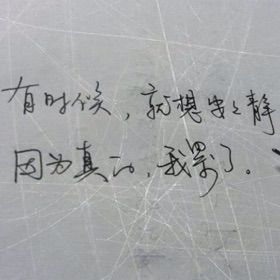 有时候，就想安安静
因为真的，我累了。